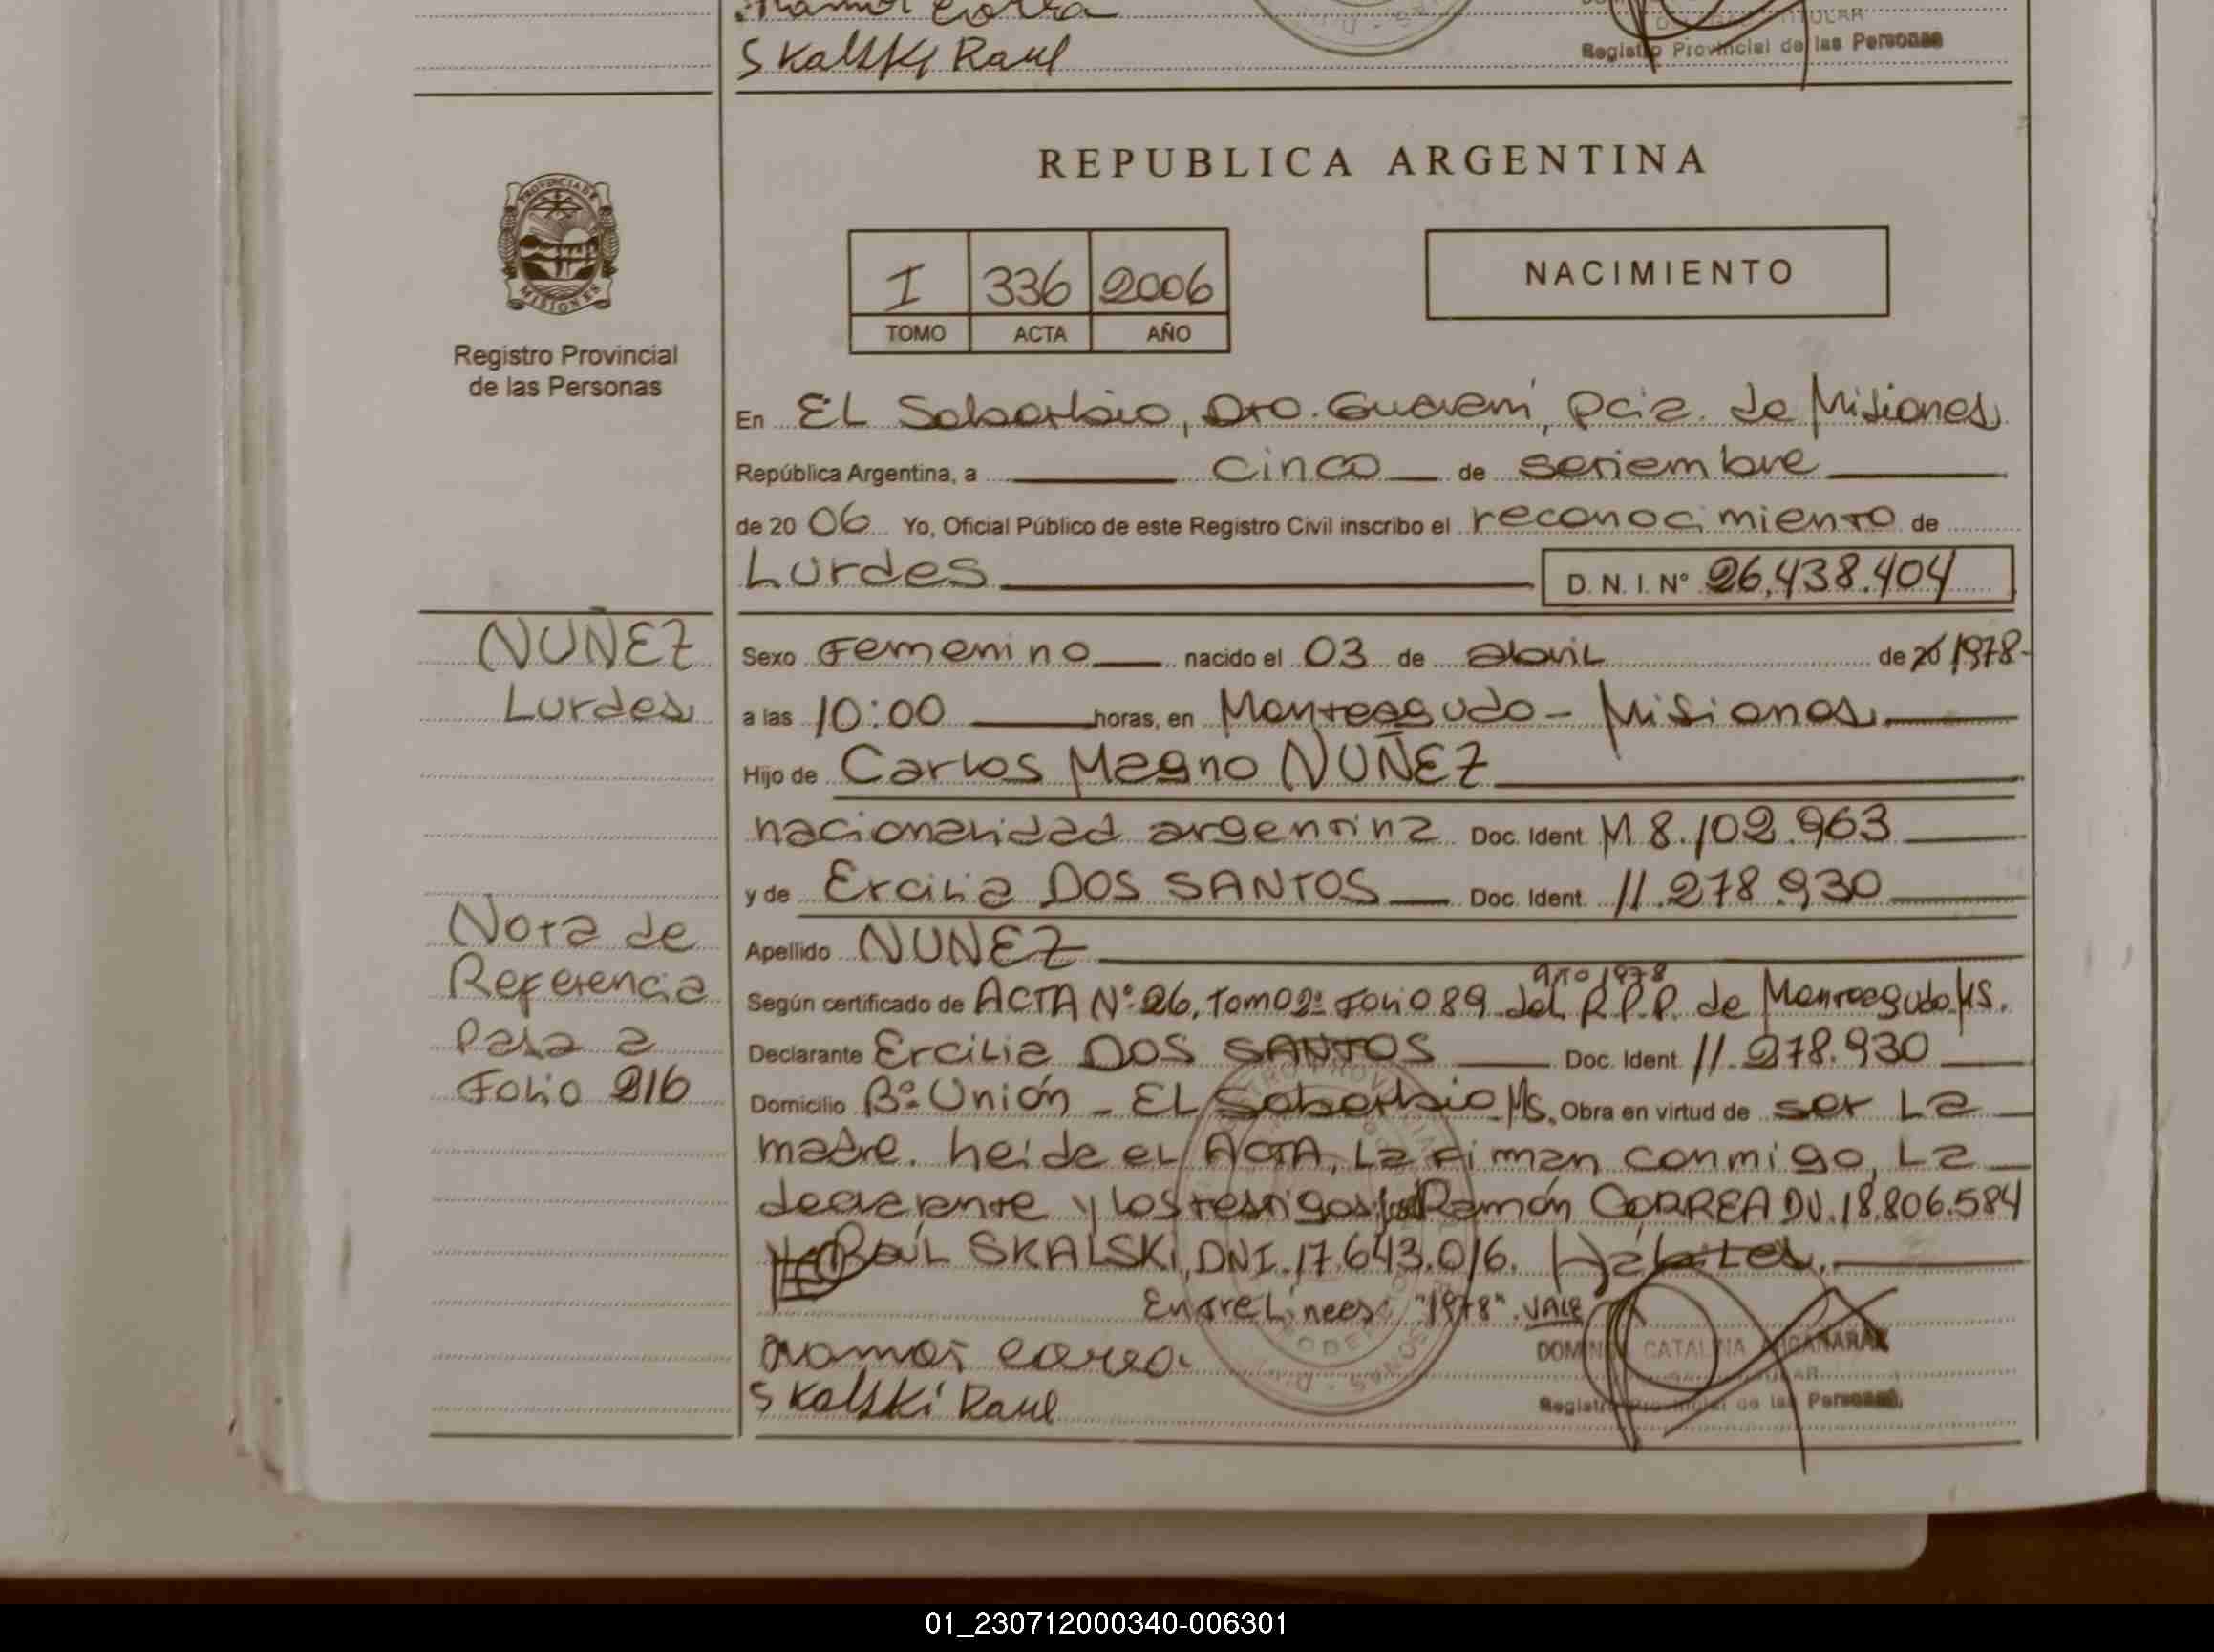 Skalski Raul
Registro Provincial de las Personas
REPUBLICA ARGENTINA
PROVINCIA DE
MISIONES
I 336 2006
TOMO ACTA AÑO
NACIMIENTO
Registro Provincial
de las Personas
En EL Soberbio, Dto. Guaraní, Pcia. de Misiones
República Argentina, a cinco de setiembre
de 20 06 Yo, Oficial Público de este Registro Civil inscribo el reconocimiento de
Lurdes D. N. I. Nº 26.438.404
NUÑEZ
Lurdes
Sexo Femenino nacido el 03 de abril de 20 1978
a las 10:00 horas, en Monteagudo - Misiones
Hijo de Carlos Magno NUÑEZ
nacionalidad argentina Doc. Ident. M 8.102.963
y de Ercilia DOS SANTOS Doc. Ident. 11.278.930
Nota de
Referencia
Pasa a
Folio 216
Apellido NUÑEZ
año 1978
Según certificado de ACTA Nº 26, Tomo 2º Folio 89 del R.P.P. de Monteagudo Ms.
Declarante Ercilia DOS SANTOS Doc. Ident. 11.278.930
Domicilio Bº Unión - EL Soberbio Ms. Obra en virtud de ser La
madre. heida el ACTA, La firman conmigo, La
declarante y los testigos Ramón CORREA DU. 18.806.584
RaúL SKALSKI, DNI. 17.643.016. Hábiles.
Entre Líneas: "1978". VALE
Skalski Raul
CATALINA
Registro Provincial de las Personas
01_230712000340-006301